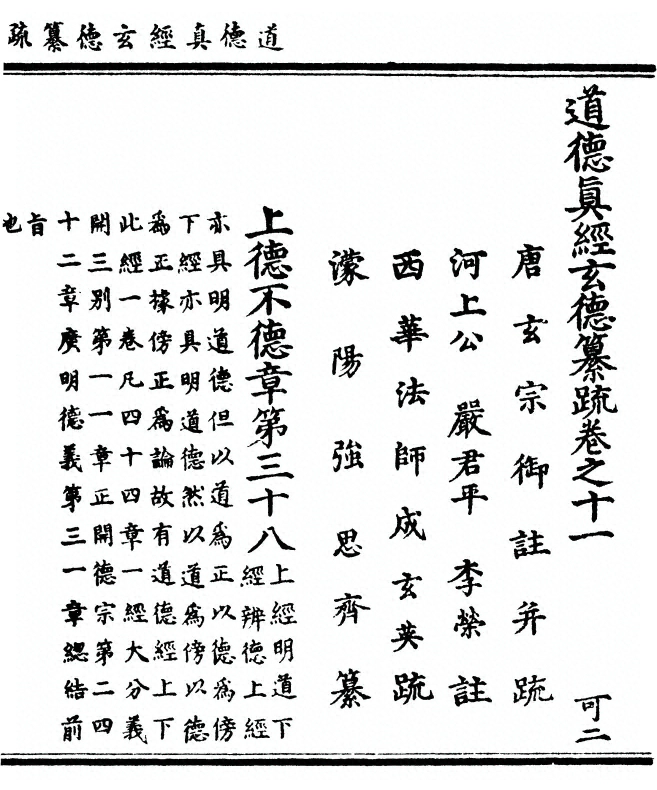 道德真經玄德纂疏
道德眞經玄德纂疏卷之十一 可二
唐玄宗御註并疏
河上公 嚴君平 李榮註
西華法師成玄英疏
濛陽強思齊纂
上德不德章第三十八
上經明道下
經辨德上經
亦具明道德但以道爲正以德爲傍
下經亦具明道德然以道爲傍以德
爲正據傍正爲論故有道德經上下
此經一卷凡四十四章一經大分義
開三別第一一章正開德宗第二四
十二章廣明德義第三一章緫結前
旨
也